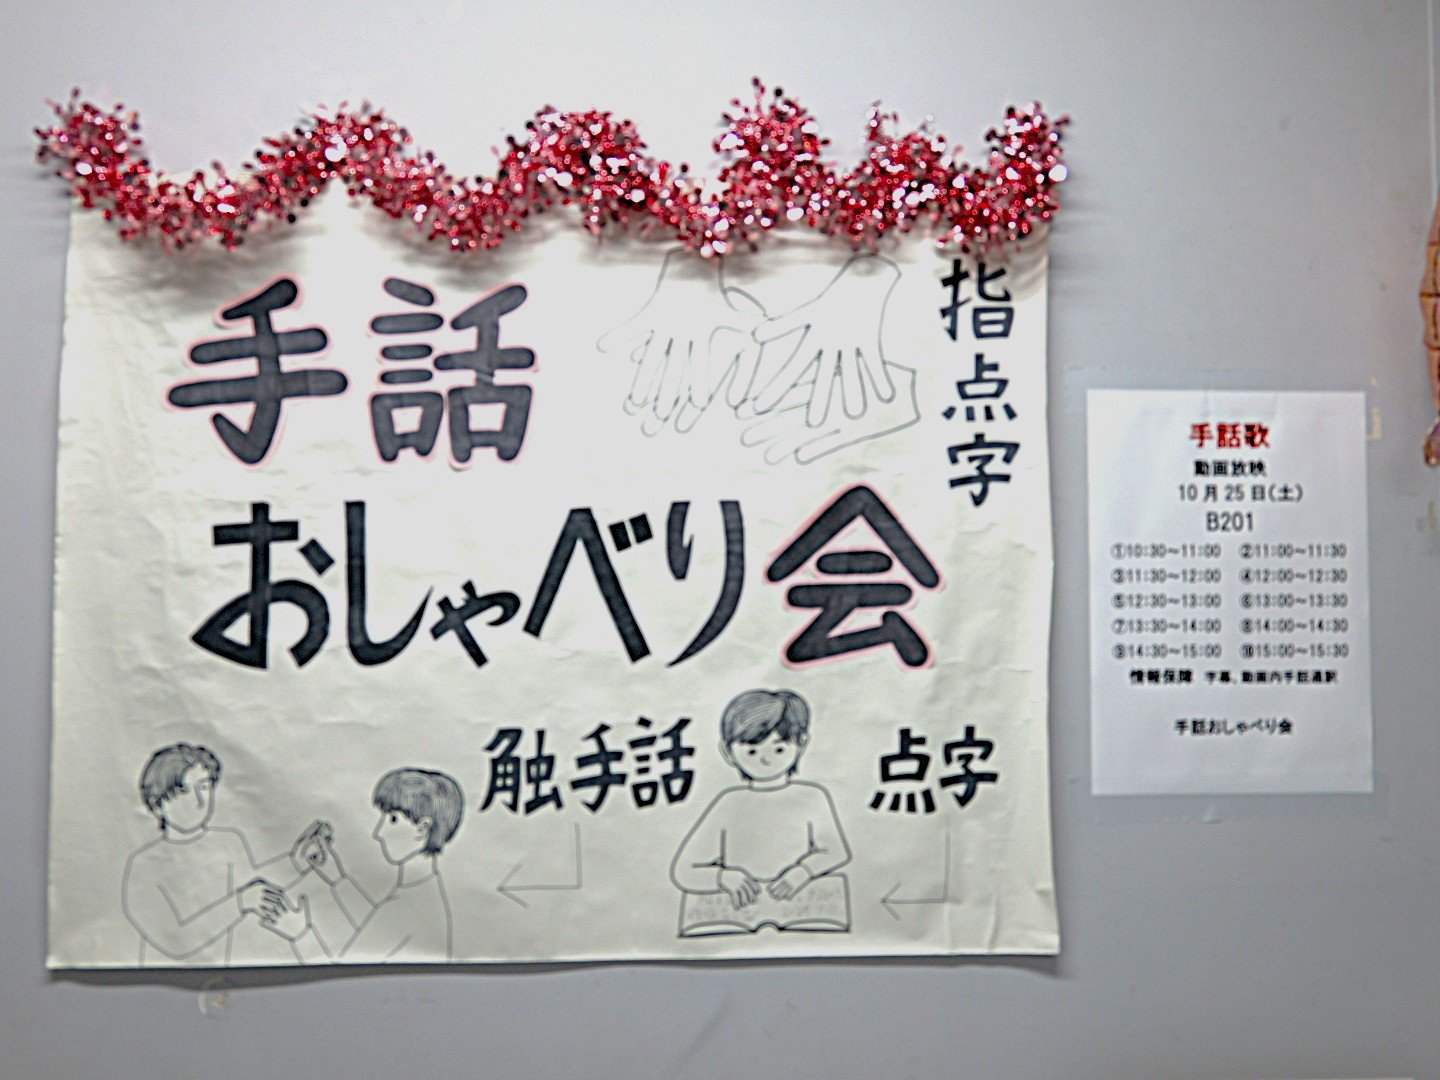 手話
おしゃべり会
指点字
触手話
点字
手話歌
動画放映
10月25日(土)
B201
①10:30～11:00 ②11:00～11:30
③11:30～12:00 ④12:00～12:30
⑤12:30～13:00 ⑥13:00～13:30
⑦13:30～14:00 ⑧14:00～14:30
⑨14:30～15:00 ⑩15:00～15:30
情報保障 字幕、動画内手話通訳
手話おしゃべり会